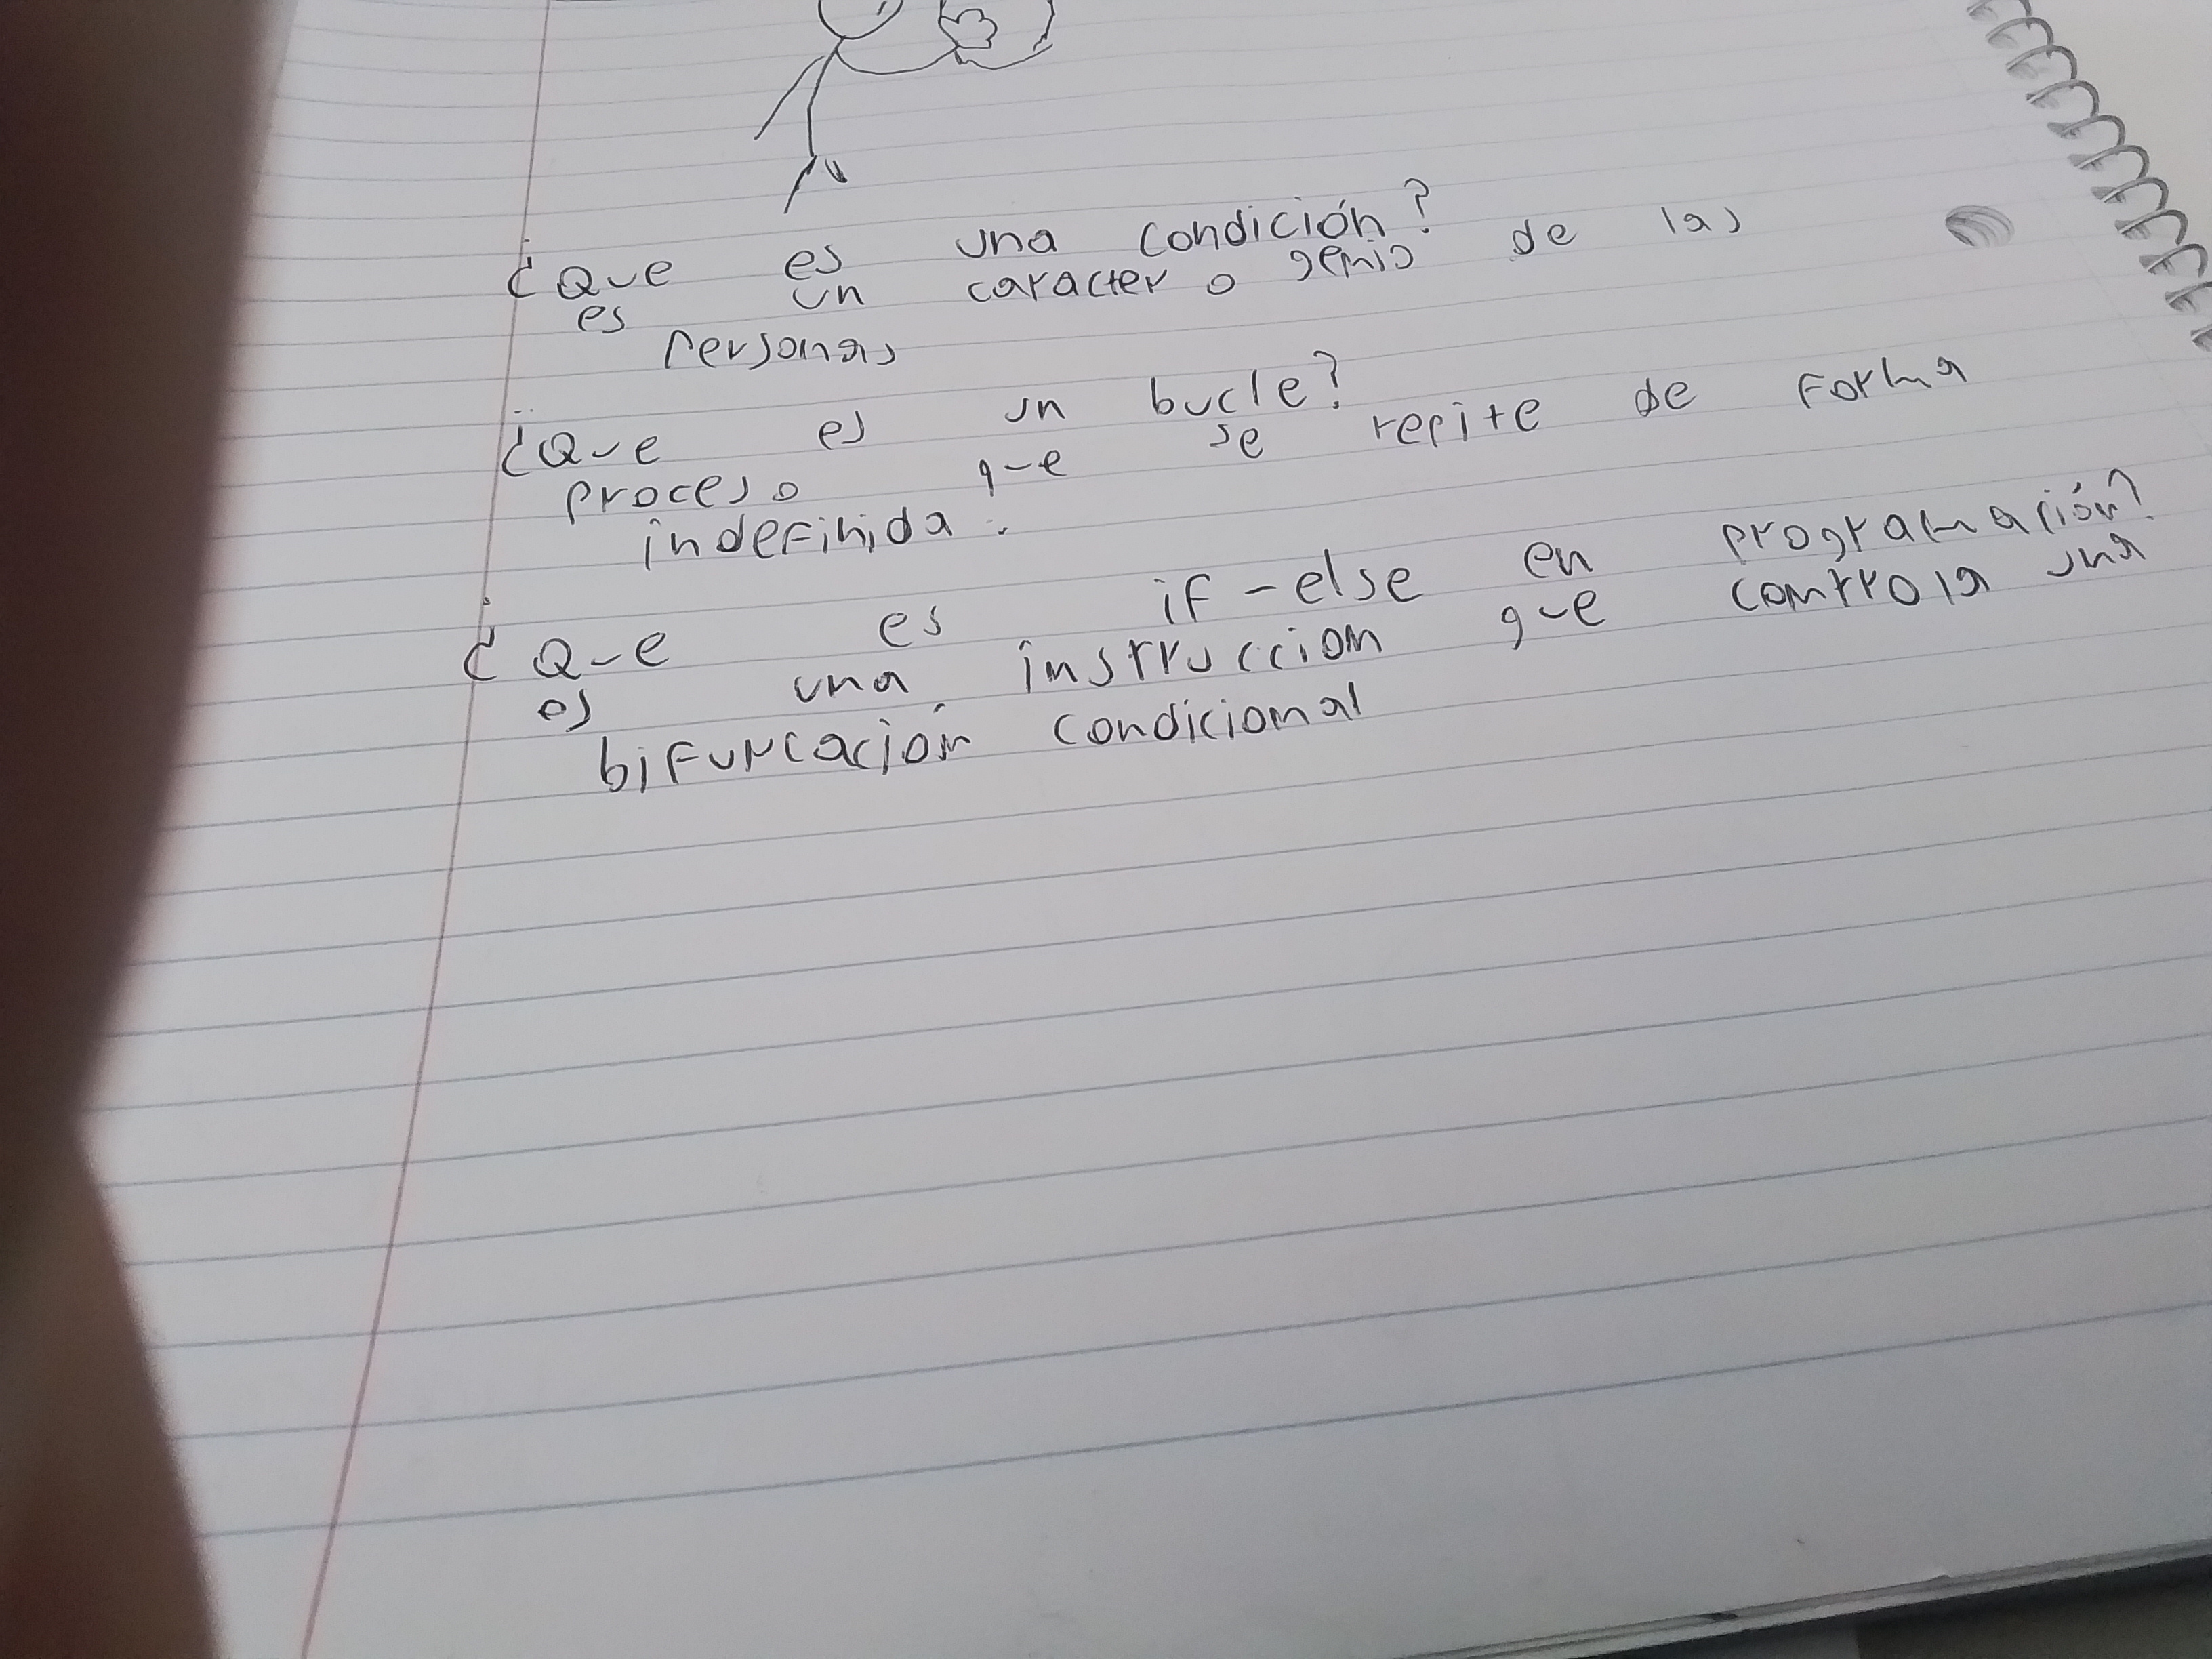 ¿Que es una condición?
es un caracter o genio de las
personas
¿Que es un bucle?
proceso que se repite de forma
indefinida.
¿Que es if-else en programación?
es una instruccion que controla una
bifurcación condicional